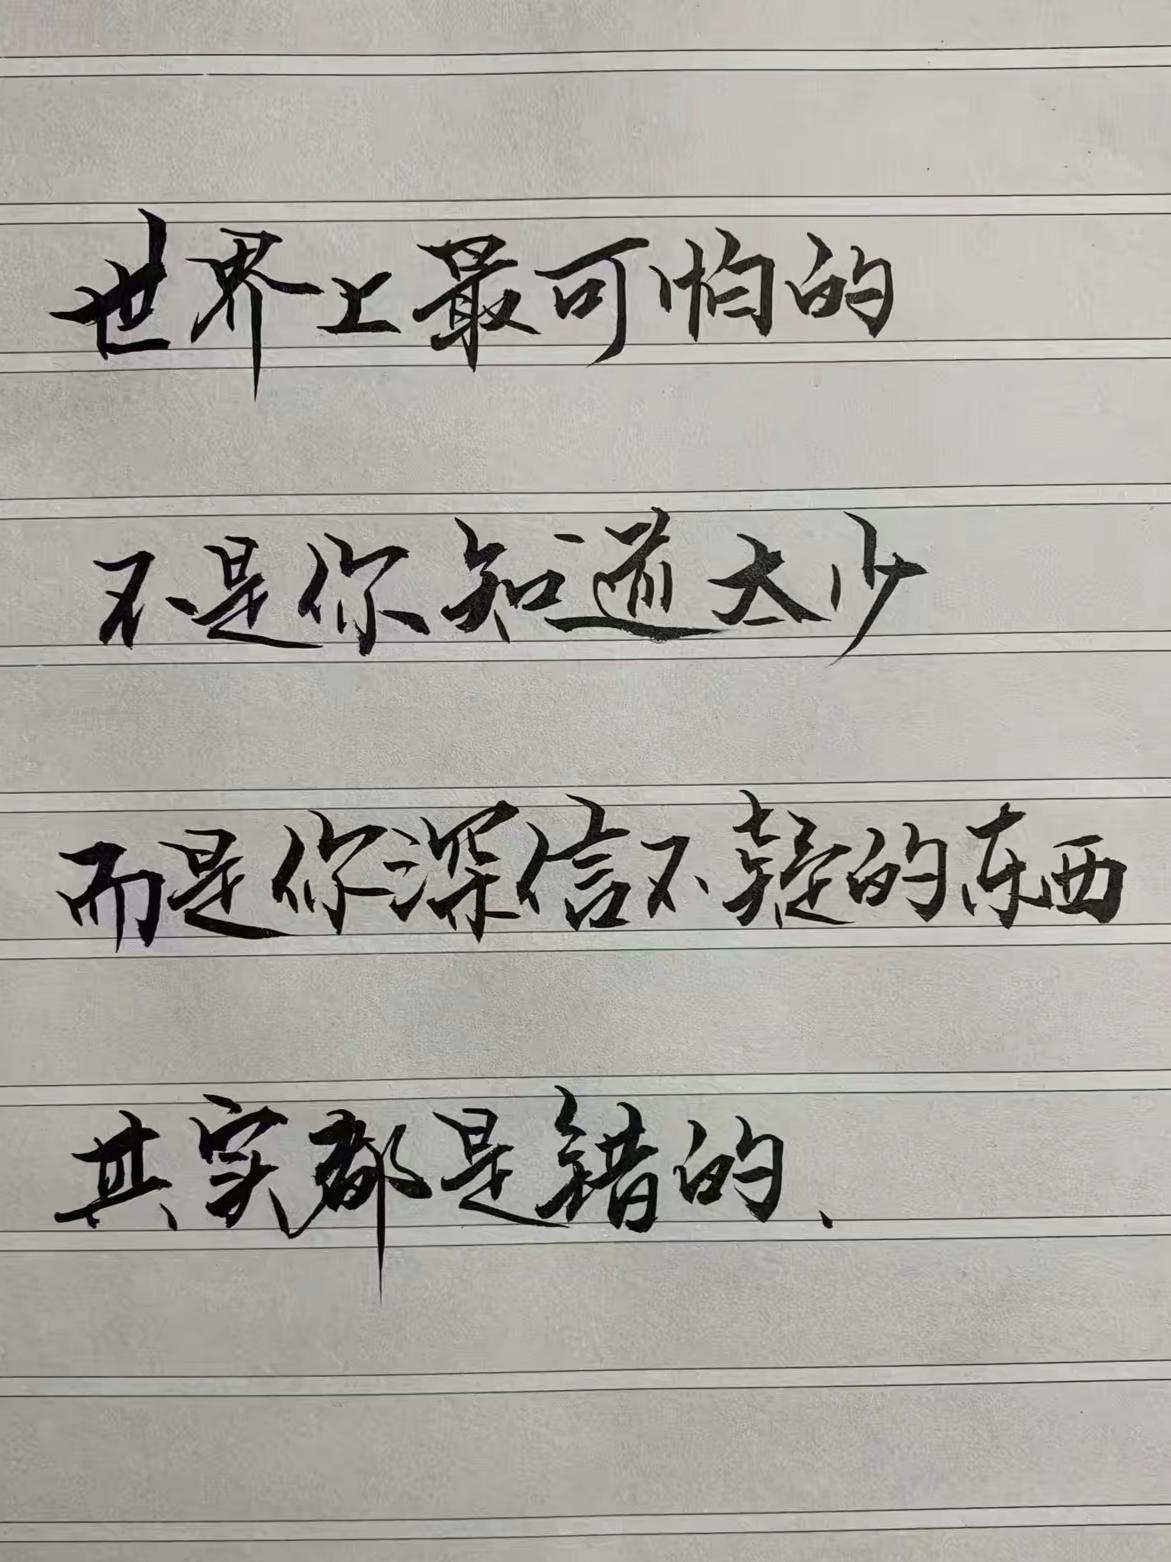 世界上最可怕的
不是你知道太少
而是你深信不疑的东西
其实都是错的、